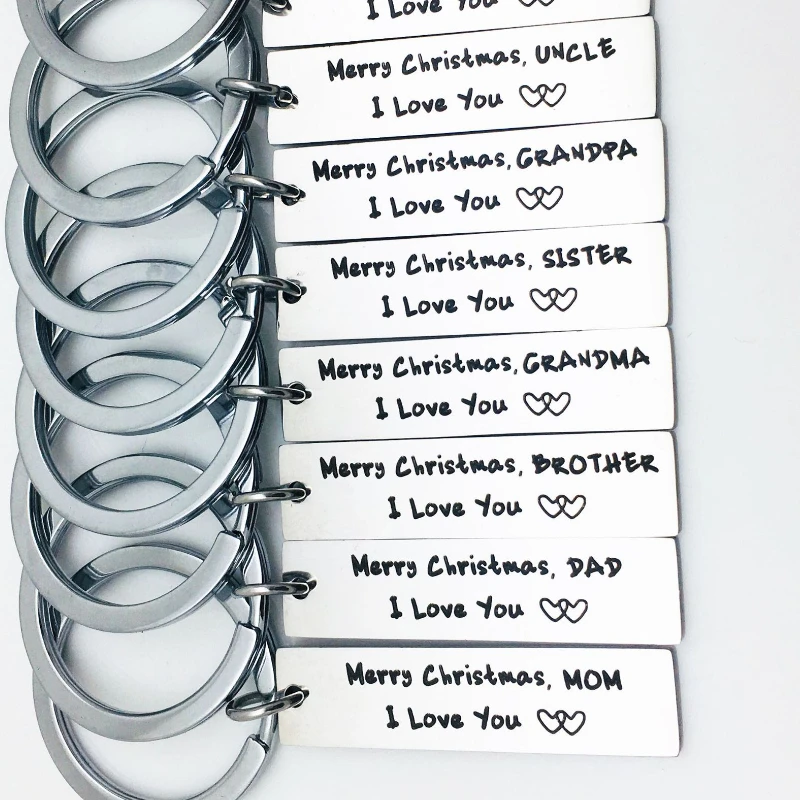 I Love You
Merry Christmas, UNCLE
I Love You
Merry Christmas, GRANDPA
I Love You
Merry Christmas, SISTER
I Love You
Merry Christmas, GRANDMA
I Love You
Merry Christmas, BROTHER
I Love You
Merry Christmas, DAD
I Love You
Merry Christmas, MOM
I Love You